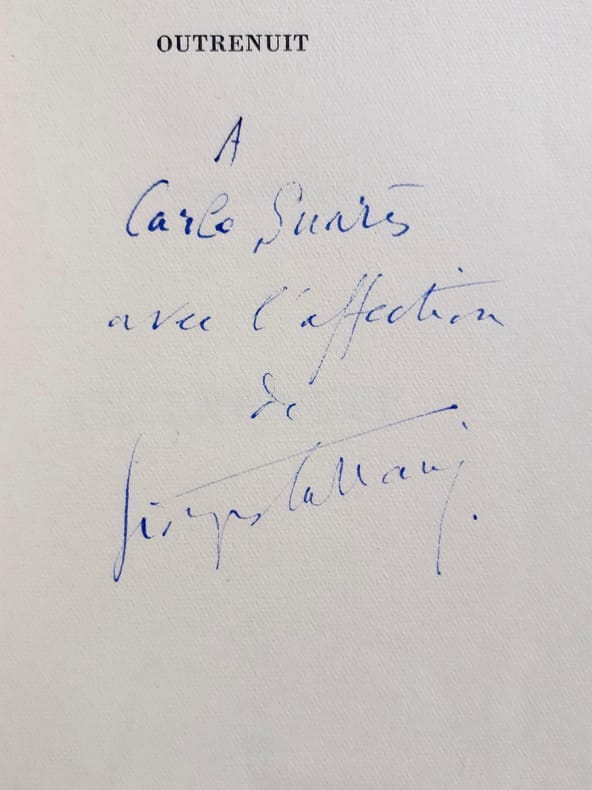 OUTRENUIT
A
Carlo Suarès
avec l'affection
de
Georges Cattaui.